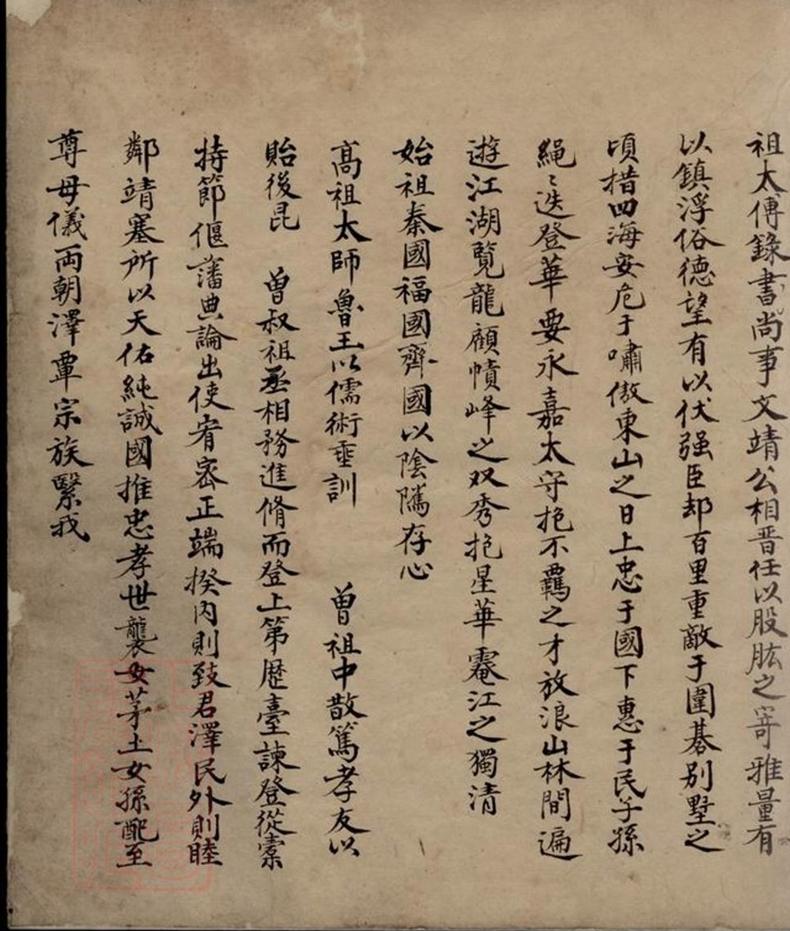 祖太傅錄書尚事文靖公相晋任以股肱之寄雅量有
以鎮浮俗德望有以伏强臣却百里重敵于圍碁別墅之
頃措四海安危于嘯傲東山之日上忠于國下惠于民子孫
繩〻迭登華要永嘉太守抱不羈之才放浪山林間遍
遊江湖覽龍顧幘峰之双秀挹星華霅江之獨清
始祖秦國福國齊國以陰隲存心
髙祖太師魯王以儒術垂訓 曽祖中散篤孝友以
貽後昆 曽叔祖丞相務進脩而登上第歴臺諌登從橐
持節偃藩典論出使宥宻正端揆内則致君澤民外則睦
鄰靖塞所以天佑純誠國推忠孝世襲茅土女孫配至
尊母儀両朝澤覃宗族緊我